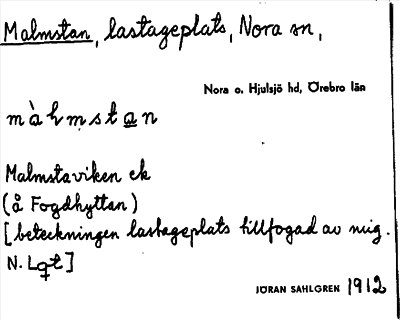 Malmstan, lastageplats, Nora sn,
Nora o. Hjulsjö hd, Örebro län
màhmstan
Malmstaviken ek
(å Fogdhyttan)
[beteckningen lastageplats tillfogad av mig.
N. Lqt]
JÖRAN SAHLGREN 1912